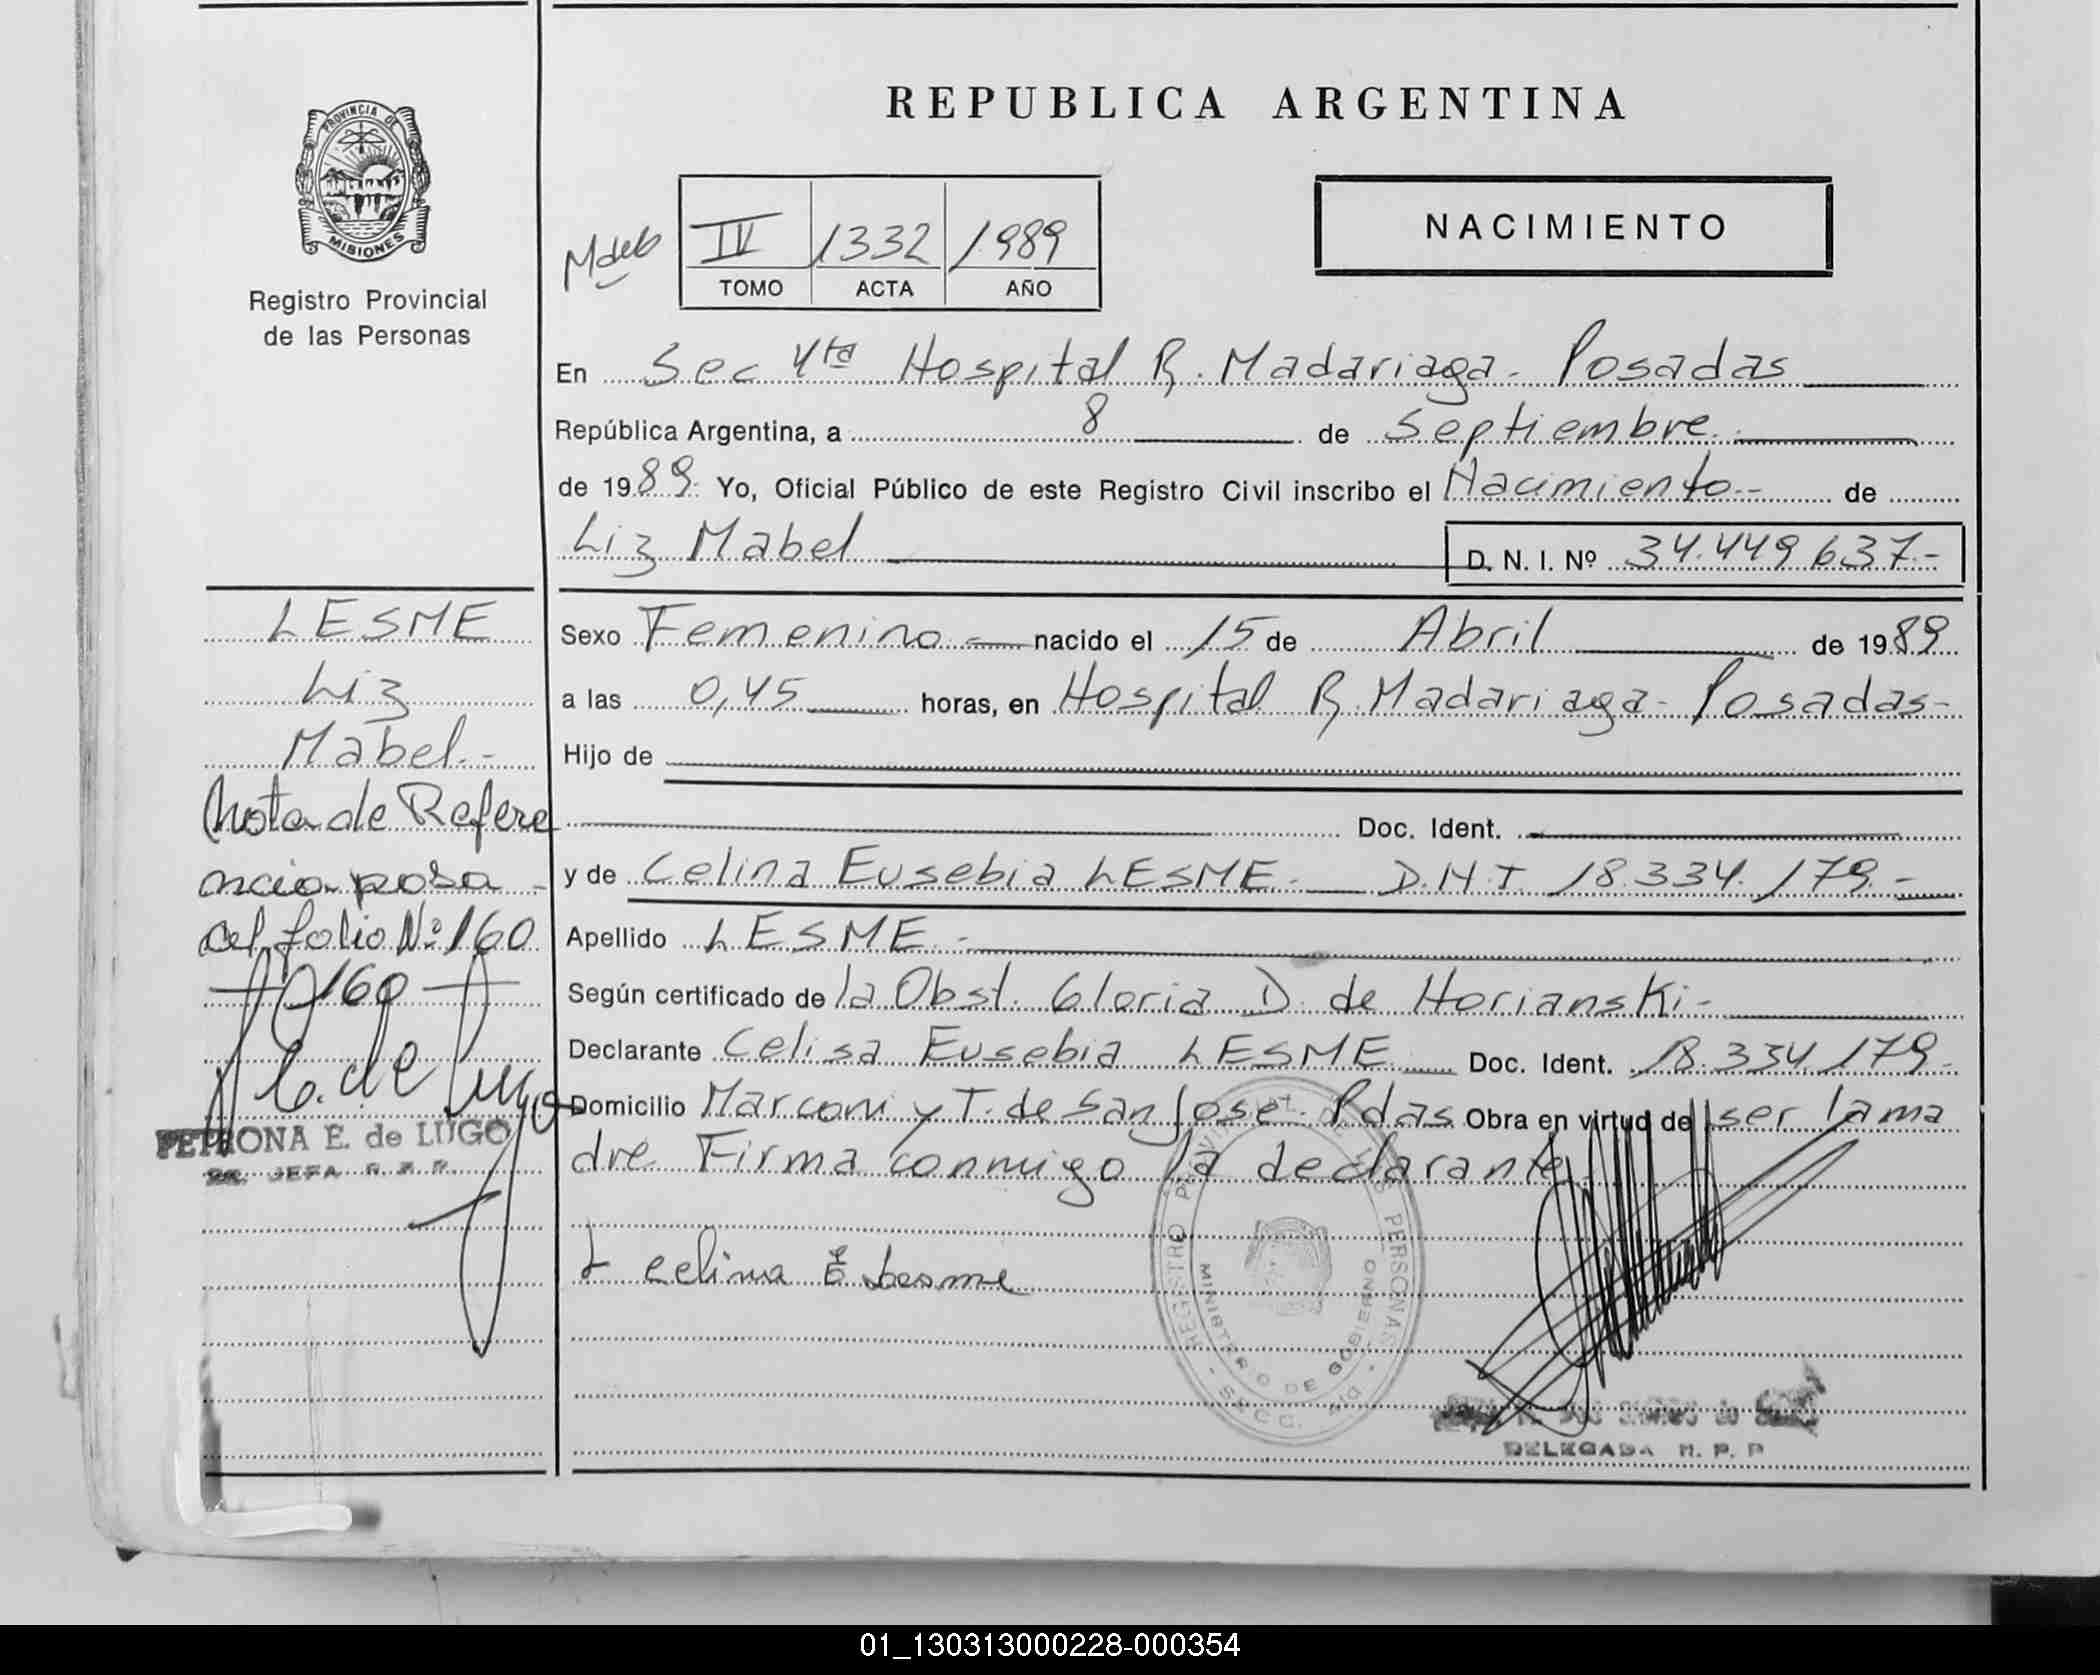 REPUBLICA ARGENTINA
PROVINCIA DE
MISIONES
Registro Provincial
de las Personas
IV 1332 1989
TOMO ACTA AÑO
NACIMIENTO
En Sec 4ta Hospital R. Madariaga - Posadas
República Argentina, a 8 de Septiembre
de 1989. Yo, Oficial Público de este Registro Civil inscribo el Nacimiento - de
Liz Mabel D. N. I. Nº 34.449.637.-
Sexo Femenino - nacido el 15 de Abril de 1989
a las 0,45 horas, en Hospital R. Madariaga - Posadas -
Hijo de
Doc. Ident.
y de Celina Eusebia LESME - D.N.I. 18.334.179.-
Apellido LESME -
Según certificado de la Obst. Gloria D. de Horianski -
Declarante Celisa Eusebia LESME Doc. Ident. 18.334.179.
Domicilio Marconi y T. de San Jose - Pdas Obra en virtud de ser la ma
dre Firma conmigo la declarante
celina E Lesme
REGISTRO PROVINCIAL DE LAS PERSONAS
MINISTERIO DE GOBIERNO
SECC. 4ta
DELEGADA R. P. P
LESME
Liz
Mabel.-
Nota de Refere
ncia pasa
al folio Nº 160
160
PETRONA E. de LUGO
JEFA R. P. P.
01_130313000228-000354